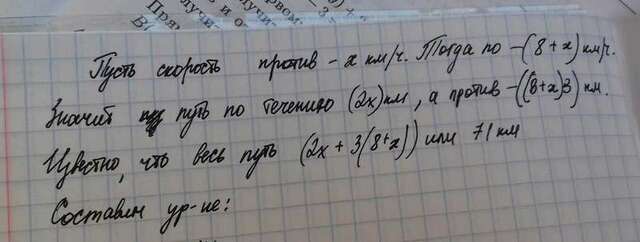 Пусть скорость против - x км/ч. Тогда по -(8+x) км/ч.
Значит путь по течению (2x) км, а против -((8+x)3) км.
Известно, что весь путь (2x + 3(8+x)) или 71 км
Составим ур-ие: